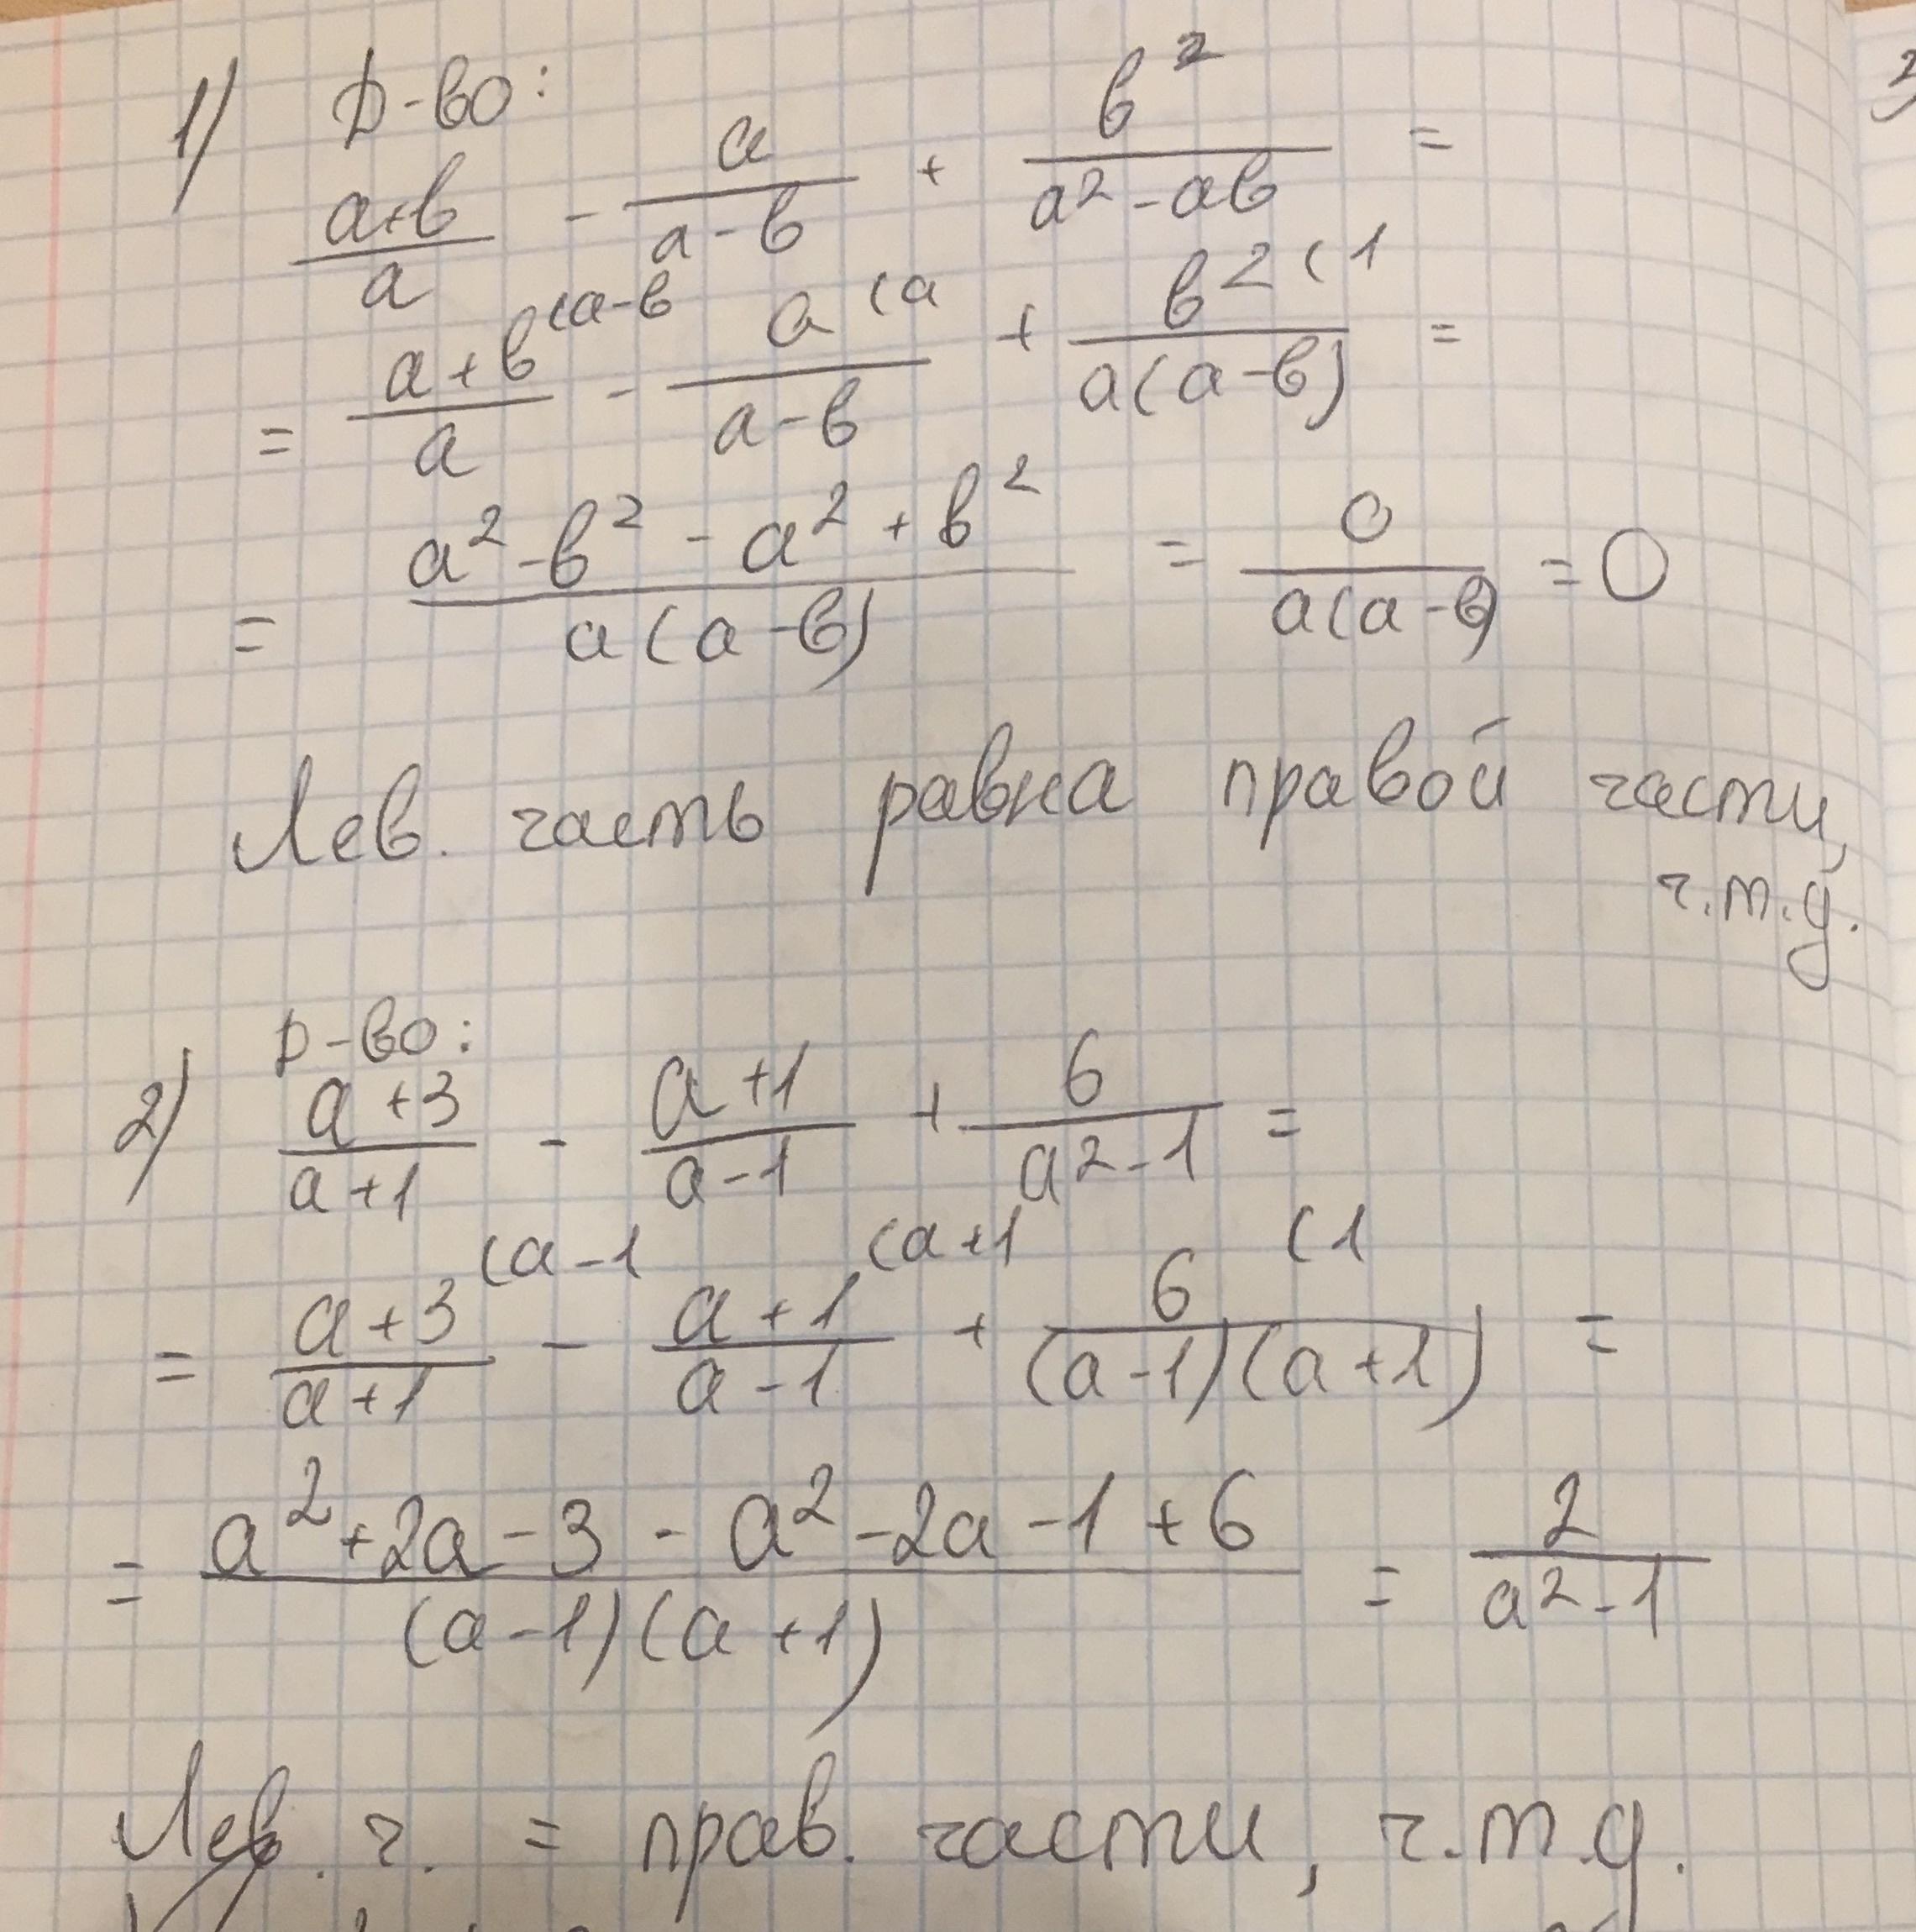 1) Д-во:
(a+b)/a - a/(a-b) + b²/(a²-ab) =
= (a+b)/a (a-b - a/(a-b) (a + b²/(a(a-b)) (1 =
= (a²-b²-a²+b²)/(a(a-b)) = 0/(a(a-b)) = 0
Лев. часть равна правой части,
ч.т.д.
2) Д-во:
(a+3)/(a+1) - (a+1)/(a-1) + 6/(a²-1) =
= (a+3)/(a+1) (a-1 - (a+1)/(a-1) (a+1 + 6/((a-1)(a+1)) (1 =
= (a²+2a-3-a²-2a-1+6)/((a-1)(a+1)) = 2/(a²-1)
Лев. ч. = прав. части, ч.т.д.